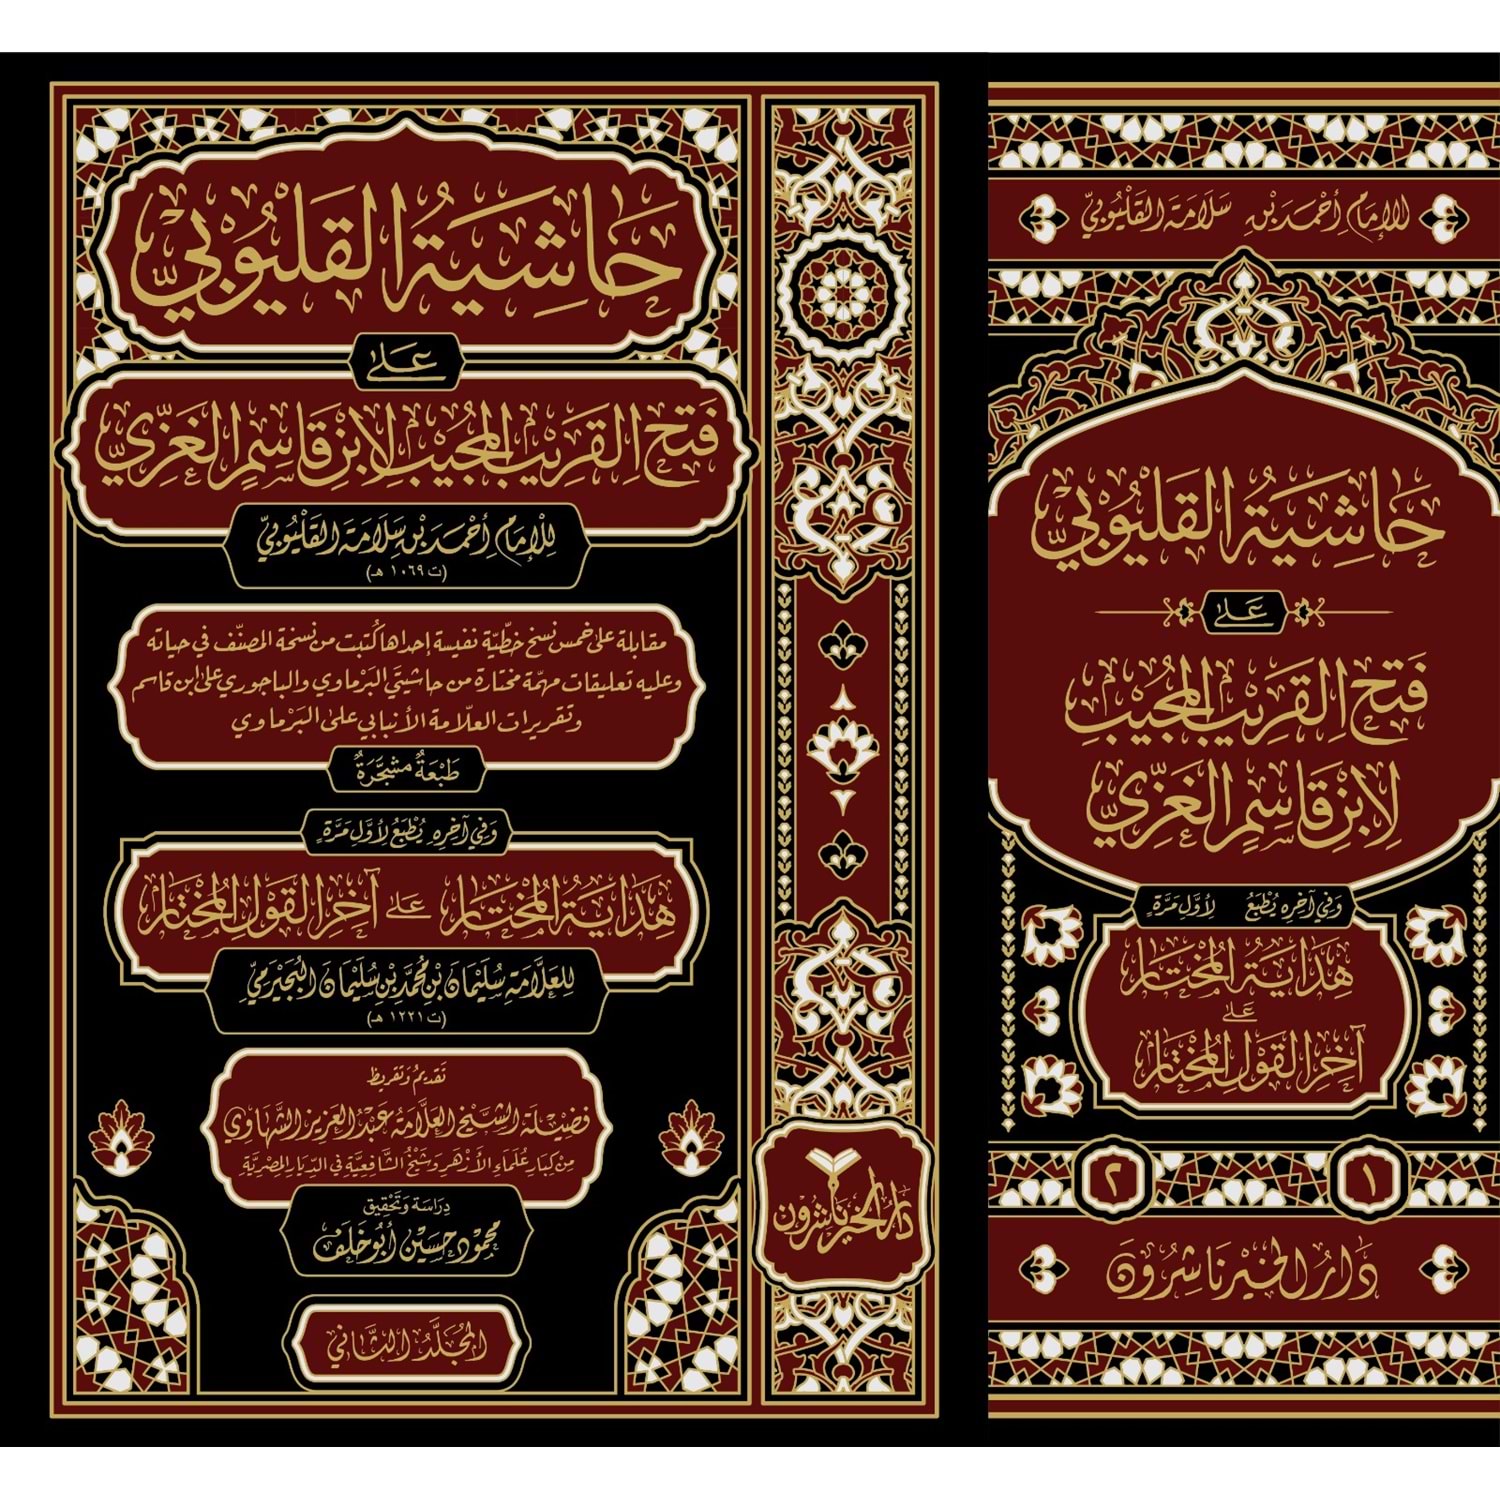 حَاشِيَةُ القَلْيُوبيِّ
عَلَى
فَتْحِ القَرِيبِ المُجِيبِ لِابْنِ قَاسِمٍ الغَزِّيِّ
لِلْإِمَامِ أَحْمَدَ بْنِ سَلَامَةَ القَلْيُوبِيِّ
(ت ١٠٦٩ هـ)
مقابلة على خمس نسخ خطيّة نفيسة إحداها كُتبت من نسخة المصنّف في حياته
وعليه تعليقات مهمّة مختارة من حاشيتَي البَرْماوي والباجوري على ابن قاسم
وتقريرات العلّامة الأنبابي على البَرْماوي
طَبْعَةٌ مشجَّرَةٌ
وَفي آخِرِهِ يُطْبَعُ لِأوَّلِ مَرَّةٍ
هِدَايَةُ المُخْتَارِ عَلَى آخِرِ القَوْلِ المُخْتَارِ
لِلعَلَّامَةِ سُلَيْمَانَ بْنِ مُحَمَّدِ بْنِ سُلَيْمَانَ البُجَيْرَمِيِّ
(ت ١٢٢١ هـ)
تَقديمُ وَتقريظ
فَضِيْلَة الشَّيْخ العَلَّامَة عَبْدُ العَزيز الشَّهَاوِي
مِنْ كِبَارِ عُلَمَاءِ الأَزْهَرِ وَشَيْخُ الشَّافِعِيَّةِ فِي الدِّيَارِ المِصْرِيَّةِ
دِرَاسَة وَتَحْقِيق
محمُود حسَيْن أبُو خَلَف
المُجَلَّدُ الثَّانِي
دَارُ الخَيْر نَاشِرُون
الإِمَام أَحْمَد بْن سَلَامَة القَلْيُوبِيّ
حَاشِيَةُ القَلْيُوبيِّ
عَلَى
فَتْحِ القَرِيبِ المُجِيبِ
لِابْنِ قَاسِمٍ الغَزِّيِّ
وَفي آخِرِهِ يُطْبَعُ لِأوَّلِ مَرَّةٍ
هِدَايَةُ المُخْتَارِ
عَلَى
آخِرِ القَوْلِ المُخْتَارِ
١ ٢
دَارُ الخَيْر نَاشِرُون